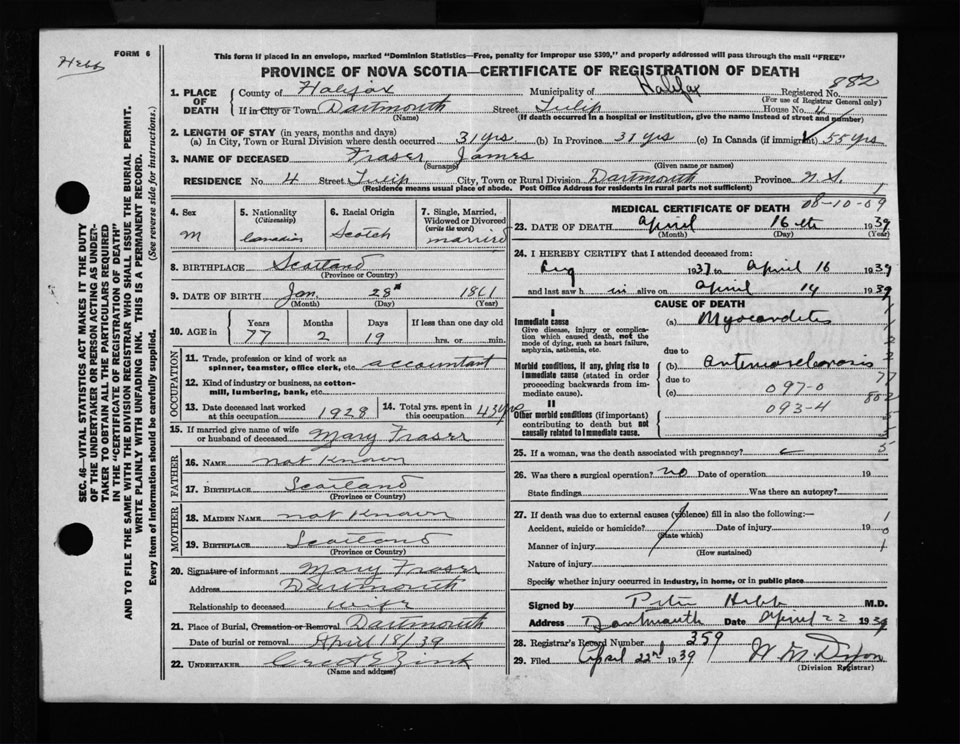 Hebb
FORM 6
This form if placed in an envelope, marked "Dominion Statistics—Free, penalty for improper use $300," and properly addressed will pass through the mail "FREE"
PROVINCE OF NOVA SCOTIA—CERTIFICATE OF REGISTRATION OF DEATH
882
1. PLACE OF DEATH County of Halifax Municipality of Halifax Registered No.
(For use of Registrar General only)
If in City or Town Dartmouth Street Tulip House No. 4
(Name) (If death occurred in a hospital or institution, give the name instead of street and number)
2. LENGTH OF STAY (in years, months and days)
(a) In City, Town or Rural Division where death occurred 31 yrs (b) In Province 31 yrs (c) In Canada (if immigrant) 55 yrs
3. NAME OF DECEASED Fraser James
(Surname) (Given name or names)
RESIDENCE No. 4 Street Tulip City, Town or Rural Division Dartmouth Province N.S.
(Residence means usual place of abode. Post Office Address for residents in rural parts not sufficient)
4. Sex M
5. Nationality (Citizenship) Canadian
6. Racial Origin Scotch
7. Single, Married, Widowed or Divorced (write the word) married
8. BIRTHPLACE Scotland
(Province or Country)
9. DATE OF BIRTH Jan. 28th 1861
(Month) (Day) (Year)
10. AGE in Years 77 Months 2 Days 19 If less than one day old hrs. or min.
OCCUPATION
11. Trade, profession or kind of work as spinner, teamster, office clerk, etc. accountant
12. Kind of industry or business, as cotton-mill, lumbering, bank, etc.
13. Date deceased last worked at this occupation 1928
14. Total yrs. spent in this occupation 43 yrs
15. If married give name of wife or husband of deceased Mary Fraser
FATHER
16. NAME not Known
17. BIRTHPLACE Scotland
(Province or Country)
MOTHER
18. MAIDEN NAME not Known
19. BIRTHPLACE Scotland
(Province or Country)
20. Signature of informant Mary Fraser
Address Dartmouth
Relationship to deceased wife
21. Place of Burial, Cremation or Removal Dartmouth
Date of burial or removal April 18/39
22. UNDERTAKER Zink
(Name and address)
MEDICAL CERTIFICATE OF DEATH 08-10-09
23. DATE OF DEATH April 16th 1939
(Month) (Day) (Year)
24. I HEREBY CERTIFY that I attended deceased from:
Aug 1937 to April 16 1939
and last saw him alive on April 14 1939
CAUSE OF DEATH
I
Immediate cause
Give disease, injury or complication which caused death, not the mode of dying, such as heart failure, asphyxia, asthenia, etc.
(a) Myocarditis
due to
Morbid conditions, if any, giving rise to immediate cause (stated in order proceeding backwards from immediate cause).
(b) arteriosclerosis
due to
(c) 097-0
093-4
77
802
II
Other morbid conditions (if important) contributing to death but not causally related to immediate cause.
25. If a woman, was the death associated with pregnancy?
5
26. Was there a surgical operation? no Date of operation 19
State findings Was there an autopsy?
27. If death was due to external causes (violence) fill in also the following:—
Accident, suicide or homicide? Date of injury 19
(State which)
Manner of injury
(How sustained)
Nature of injury
Specify whether injury occurred in industry, in home, or in public place
1
0
1
Signed by Peter Hebb M.D.
Address Dartmouth Date April 22 1939
28. Registrar's Record Number 359
29. Filed April 22nd 1939 W M Dixon
(Division Registrar)
SEC. 46—VITAL STATISTICS ACT MAKES IT THE DUTY OF THE UNDERTAKER OR PERSON ACTING AS UNDERTAKER TO OBTAIN ALL THE PARTICULARS REQUIRED IN THE "CERTIFICATE OF REGISTRATION OF DEATH" AND TO FILE THE SAME WITH THE DIVISION REGISTRAR WHO SHALL ISSUE THE BURIAL PERMIT.
WRITE PLAINLY WITH UNFADING INK. THIS IS A PERMANENT RECORD.
Every item of information should be carefully supplied. (See reverse side for instructions.)